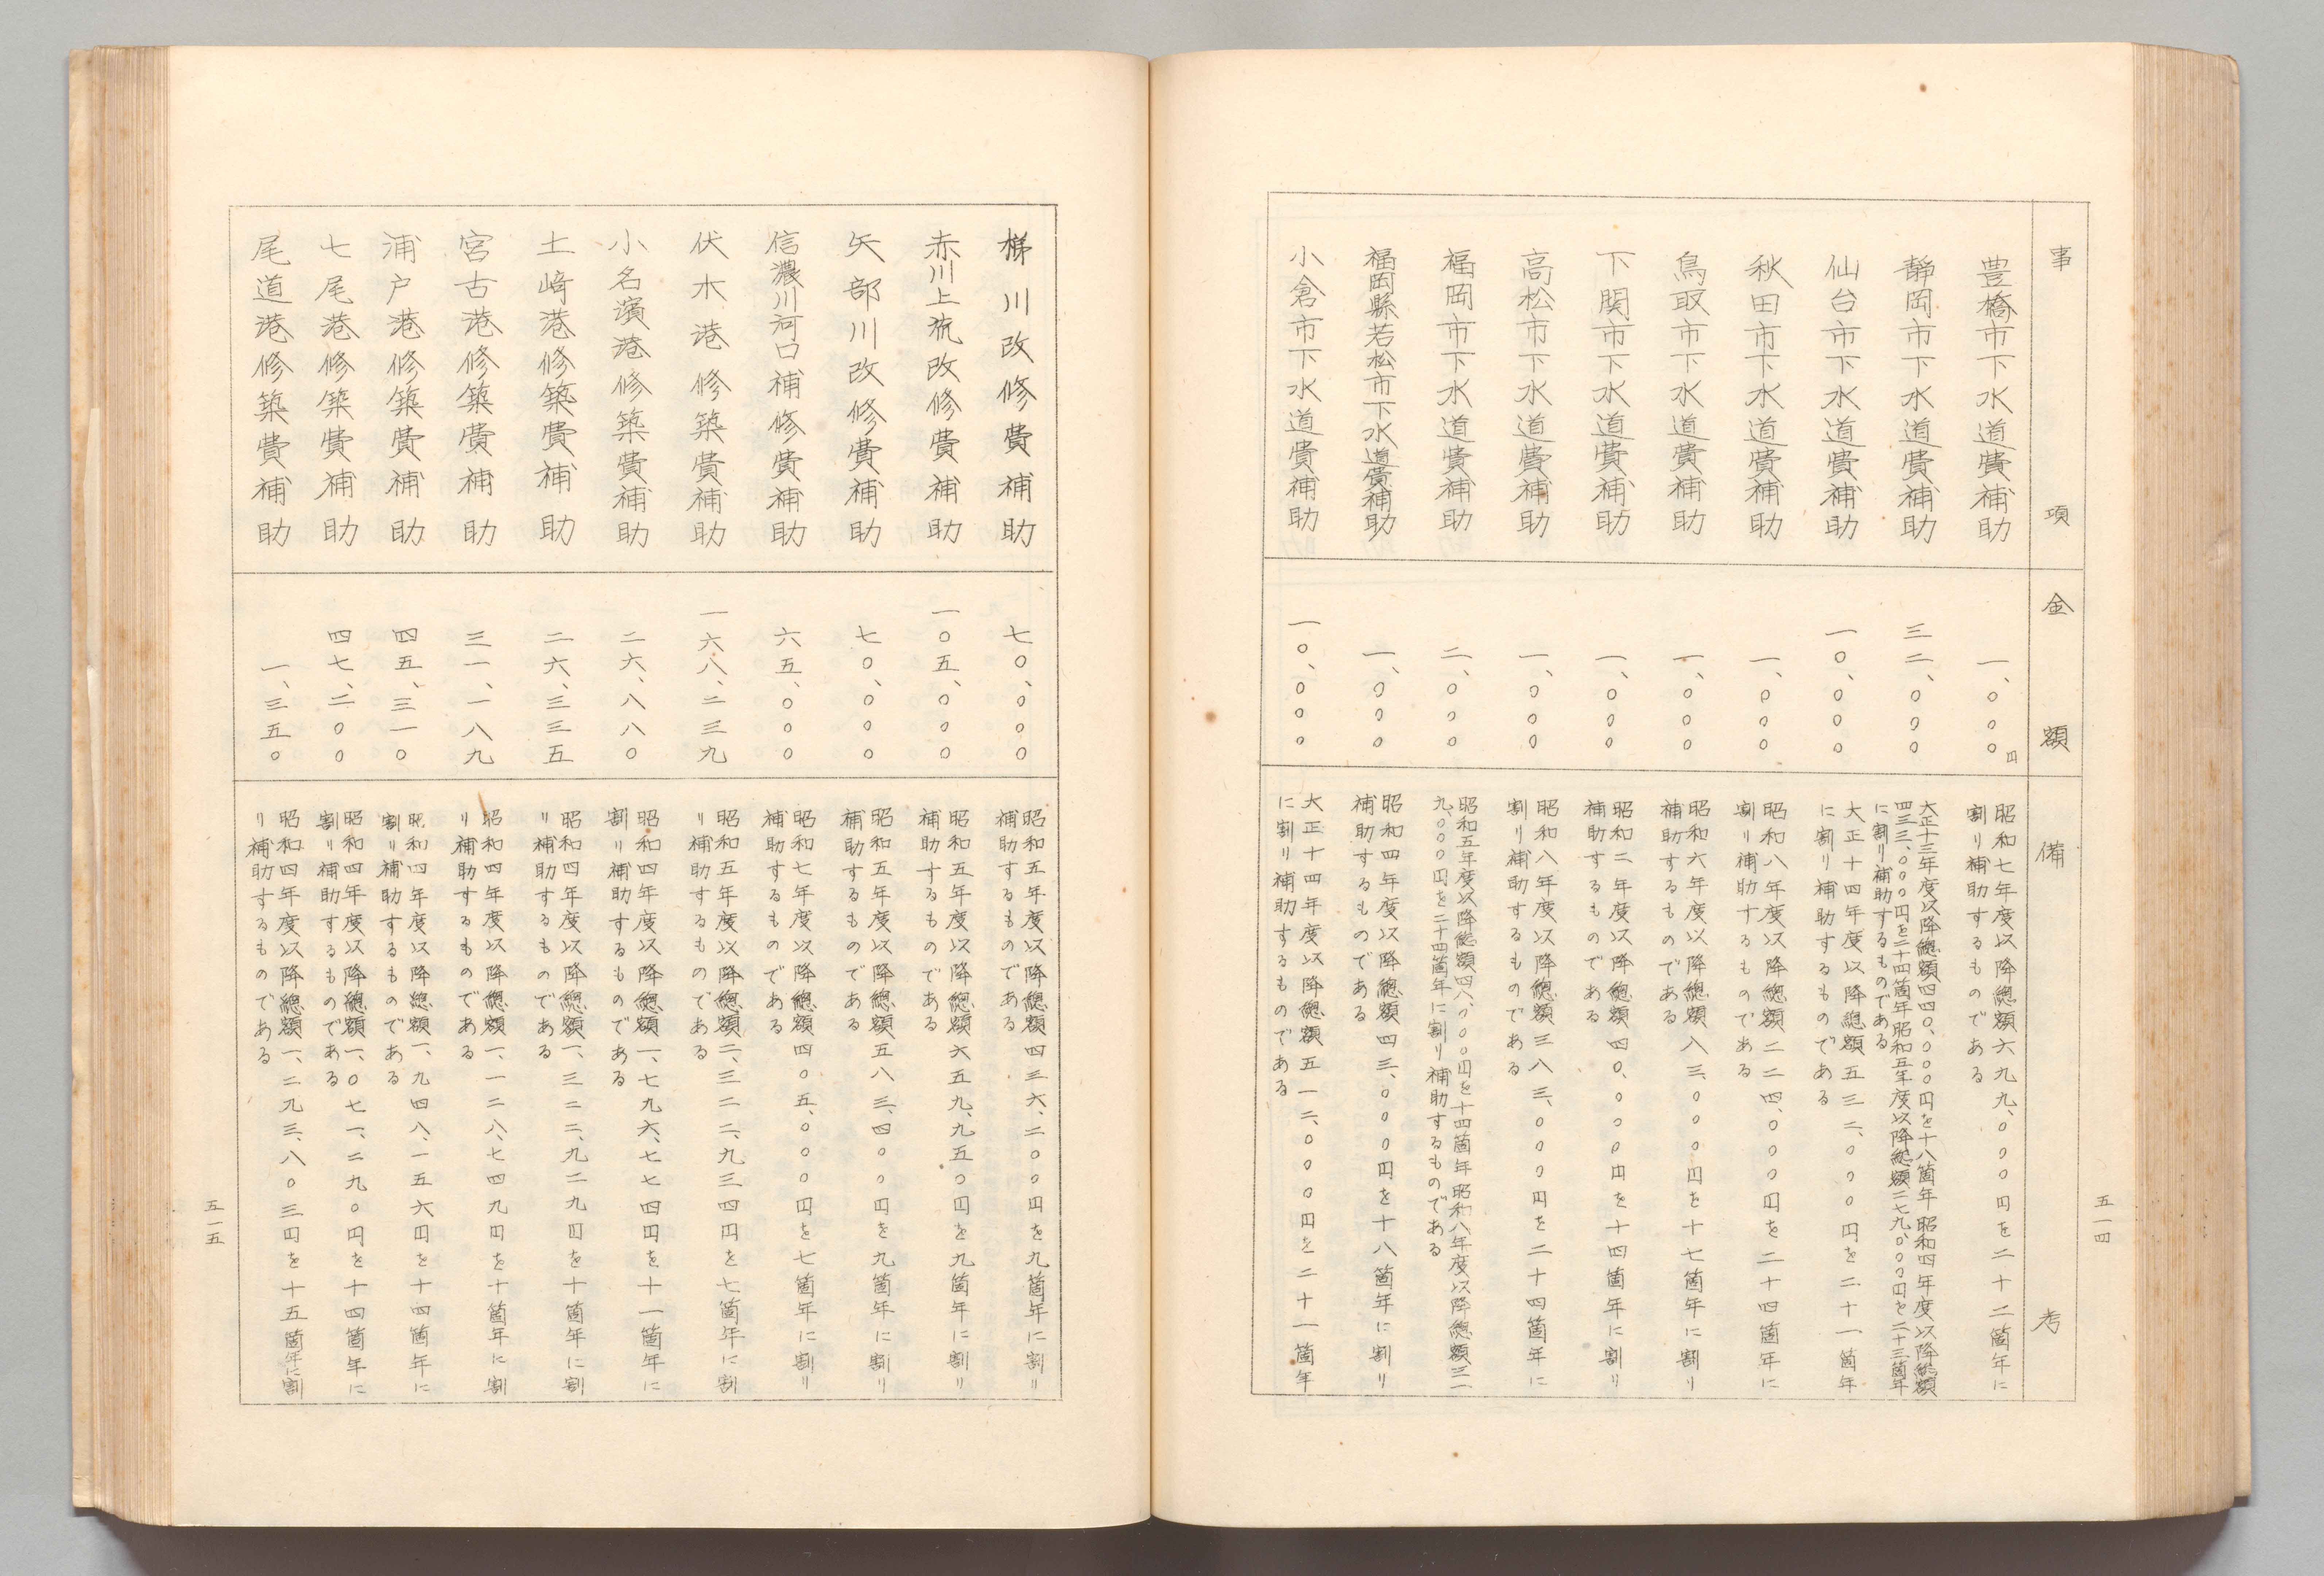 事項
金額
備考
豊橋市下水道費補助
一、〇〇〇円
昭和七年度以降總額六九九、〇〇〇円を二十二箇年に
割り補助するものである
靜岡市下水道費補助
三二、〇〇〇
大正十三年度以降總額四四〇、〇〇〇円を十八箇年昭和四年度以降總額
四三三、〇〇〇円を二十四箇年昭和五年度以降總額二七九、〇〇〇円を二十三箇年
に割り補助するものである
仙台市下水道費補助
一〇、〇〇〇
大正十四年度以降總額五三二、〇〇〇円を二十一箇年
に割り補助するものである
秋田市下水道費補助
一、〇〇〇
昭和八年度以降總額二二四、〇〇〇円を二十四箇年に
割り補助するものである
鳥取市下水道費補助
一、〇〇〇
昭和六年度以降總額八三、〇〇〇円を十七箇年に割り
補助するものである
下関市下水道費補助
一、〇〇〇
昭和二年度以降總額四〇、〇〇〇円を十四箇年に割り
補助するものである
高松市下水道費補助
一、〇〇〇
昭和八年度以降總額三八三、〇〇〇円を二十四箇年に
割り補助するものである
福岡市下水道費補助
二、〇〇〇
昭和五年度以降總額四八、〇〇〇円を十四箇年昭和八年度以降總額三一
九、〇〇〇円を二十四箇年に割り補助するものである
福岡縣若松市下水道費補助
一、〇〇〇
昭和四年度以降總額四三、〇〇〇円を十八箇年に割り
補助するものである
小倉市下水道費補助
一〇、〇〇〇
大正十四年度以降總額五一二、〇〇〇円を二十一箇年
に割り補助するものである
五一四
梯川改修費補助
七〇、〇〇〇
昭和五年度以降總額四三六、二〇〇円を九箇年に割り
補助するものである
赤川上流改修費補助
一〇五、〇〇〇
昭和五年度以降總額六五九、九五〇円を九箇年に割り
補助するものである
矢部川改修費補助
七〇、〇〇〇
昭和五年度以降總額五八三、四〇〇円を九箇年に割り
補助するものである
信濃川河口補修費補助
六五、〇〇〇
昭和七年度以降總額四〇五、〇〇〇円を七箇年に割り
補助するものである
伏木港修築費補助
一六八、二三九
昭和五年度以降總額二、三二二、九三四円を七箇年に割
り補助するものである
小名濱港修築費補助
二六、八八〇
昭和四年度以降總額一、七九六、七七四円を十一箇年に
割り補助するものである
土崎港修築費補助
二六、三三五
昭和四年度以降總額一、三二二、九二九円を十箇年に割
り補助するものである
宮古港修築費補助
三一、一八九
昭和四年度以降總額一、一二八、七四九円を十箇年に割
り補助するものである
浦戸港修築費補助
四五、三一〇
昭和四年度以降總額一、九四八、一五六円を十四箇年に
割り補助するものである
七尾港修築費補助
四七、二〇〇
昭和四年度以降總額一、〇七一、二九〇円を十四箇年に
割り補助するものである
尾道港修築費補助
一、三五〇
昭和四年度以降總額一、二九三、八〇三円を十五箇年に割
り補助するものである
五一五